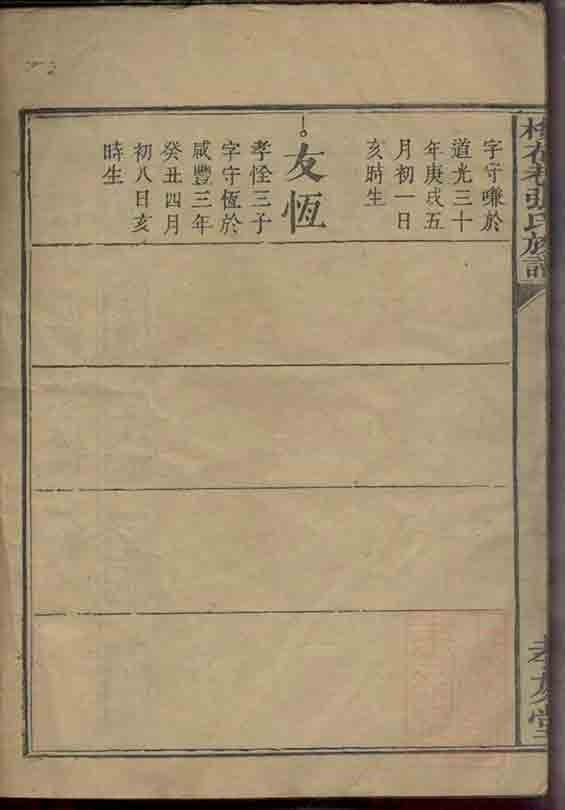 字守嗛於
道光三十
年庚戌五
月初一日
亥時生
友恆
孝恮三子
字守恆於
咸豐三年
癸丑四月
初八日亥
時生
張氏族譜
孝友堂